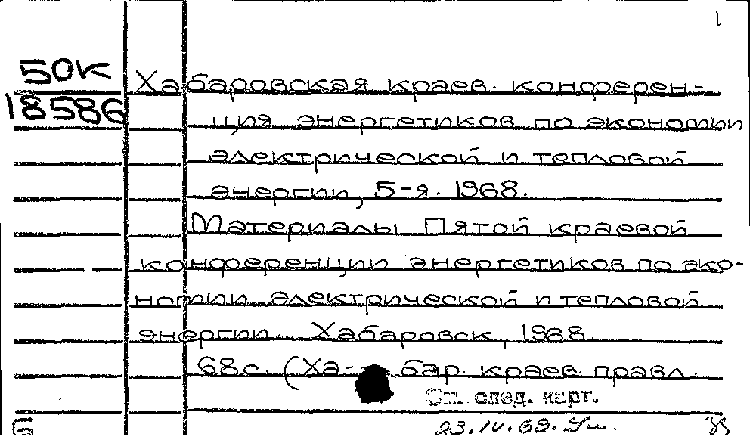 1
50к
18586
Хабаровская краев. конферен-
ция энергетиков по экономии
электрической и тепловой
энергии, 5-я. 1968.
Материалы Пятой краевой
конференции энергетиков по эко-
номии электрической и тепловой
энергии. Хабаровск, 1968.
68 с. (Хабар. краев. правл.
См. след. карт.
23.IV.69.